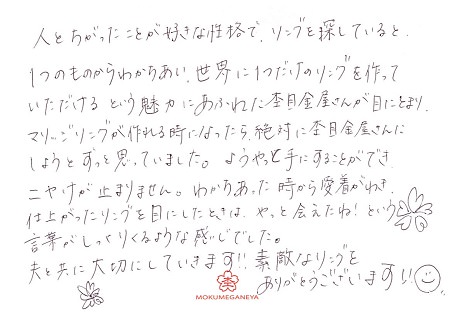 人とちがったことが好きな性格で、リングを探していると、
1つのものからわかちあい、世界に1つだけのリングを作って
いただける という魅力にあふれた杢目金屋さんが目にとまり、
マリッジリングが作れる時になったら、絶対に杢目金屋さんに
しようとずっと思っていました。ようやっと手にすることができ、
ニヤけが止まりません。わかちあった時から愛着がわき、
仕上がったリングを目にしたときは、やっと会えたね！という
言葉がしっくりくるような感じでした。
夫と共に大切にしていきます!! 素敵なリングを
ありがとうございます!!
MOKUMEGANEYA